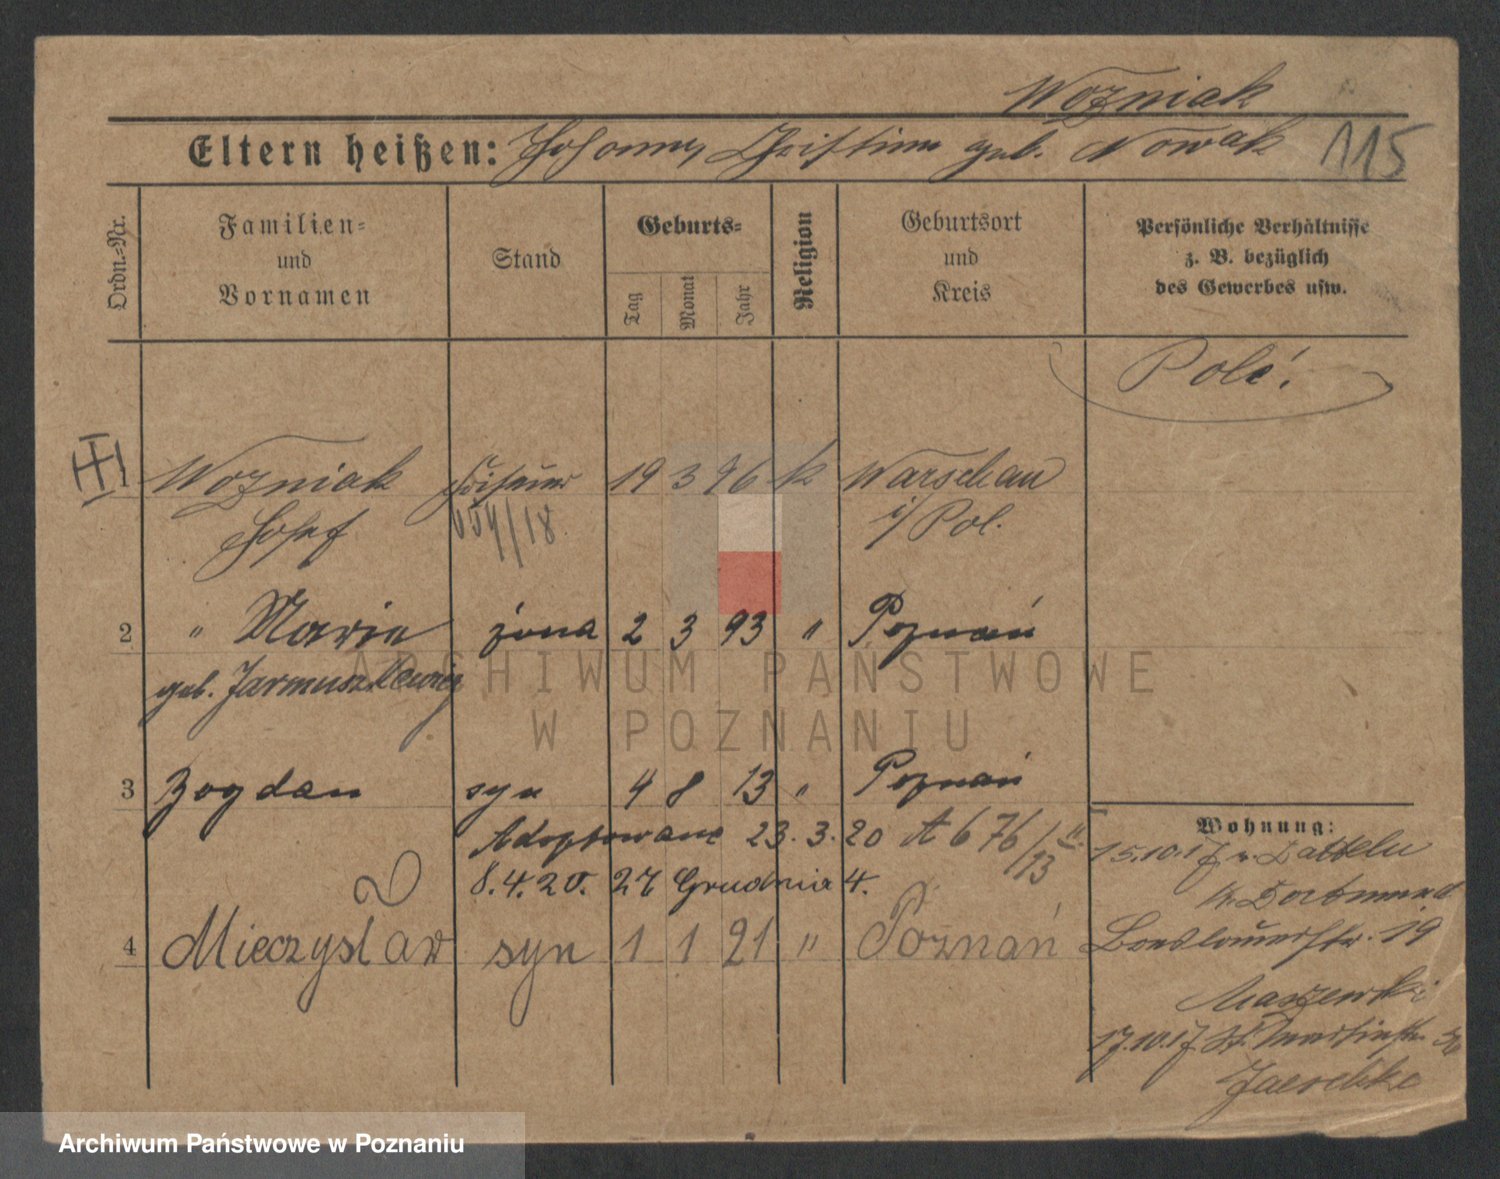 Wozniak
Eltern heißen: Johann, Christine geb. Nowak
115
Ordn.=Nr.
Familien= und Vornamen
Stand
Geburts=
Tag
Monat
Jahr
Religion
Geburtsort und Kreis
Persönliche Verhältnisse z. B. bezüglich des Gewerbes usw.
Pole!
Wozniak 19 3 96 k Warschau
Josef i/Pol.
2 " Marie żona 2 3 93 " Poznań
geb. Jarmuszkiewicz
3 Bogdan syn 4 8 13 " Poznań
Adoptowane 23.3.20 A 676/13 II
8.4.20. 27 Grudnia 4.
4 Mieczysław syn 1 1 21 " Poznań
Wohnung:
15.10.17 v. Datteln
Kr. Dortmund
Breslauerstr. 19
Maszewski
17.10.17 St. Martinstr.
Jaeschke
ARCHIWUM PAŃSTWOWE
W POZNANIU
Archiwum Państwowe w Poznaniu